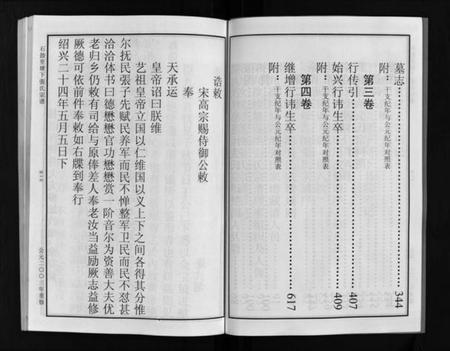 墓志……344
附：干支纪年与公元纪年对照表
第三卷
行传引……407
始兴行讳生卒……409
附：干支纪年与公元纪年对照表
第四卷
继增行讳生卒……617
附：干支纪年与公元纪年对照表
诰敕
宋高宗赐侍御公敕
奉
天承运
皇帝诏曰朕维
艺祖皇帝立国以仁维国以义上下之间各得其分惟
尔抚民張子先赋民养军而民不惮整军卫民而民不怼甚
洽洽体书曰德懋懋官功懋懋赏一阶音尔为资善大夫优
老归乡仍敕有司给与原俸差人奉老汝当益励厥志益修
厥德可依前件奉敕如右牒到奉行
绍兴二十四年五月五日下
公元二〇〇一年重修